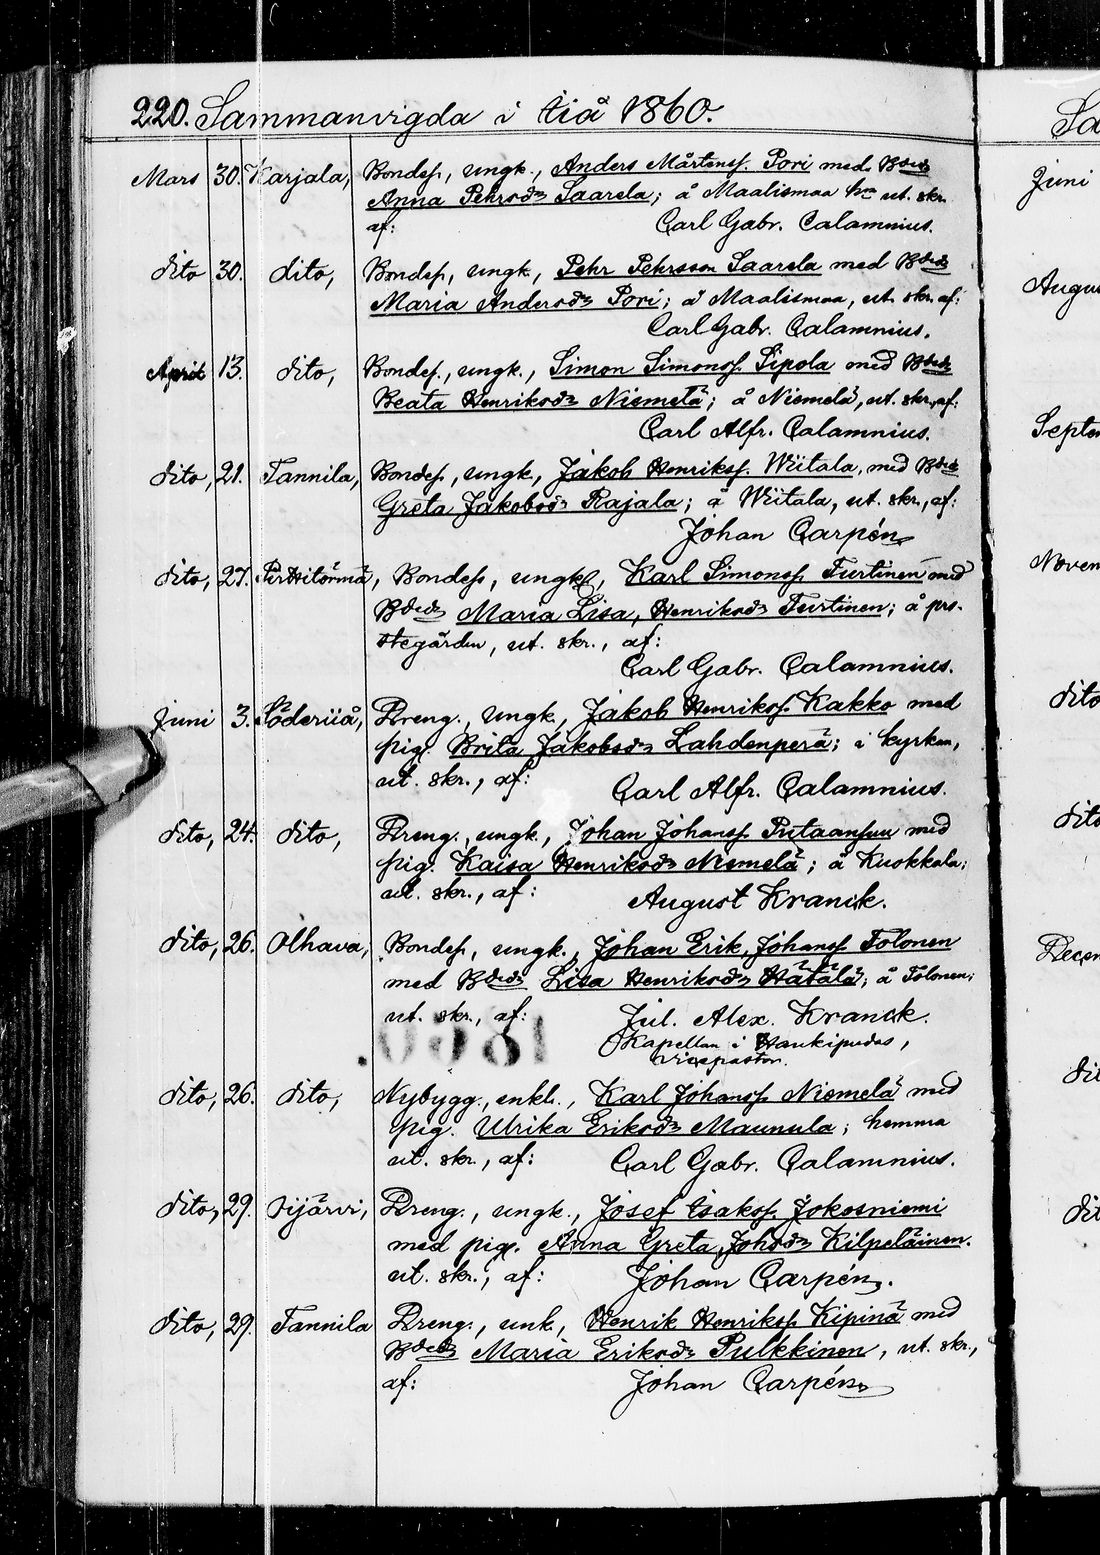 220. Sammanvigda i Iiå 1860.
Mars 30. Karjala, Bondes., ungk., Anders Mårtenss. Pori med Bdedr
Anna Pehrsdr Saarela; å Maalismaa hm ut. skr.
af: Carl Gabr. Calamnius.
dito 30. dito, Bondes., ungk., Pehr Pehrsson Saarela med Bdedr
Maria Andersdr Pori; å Maalismaa, ut. skr. af:
Carl Gabr. Calamnius.
April 13. dito, Bondes., ungk., Simon Simonss. Sipola med Bdedr
Beata Henriksdr Niemelä; å Niemelä, ut. skr., af:
Carl Alfr. Calamnius.
dito, 21. Tannila, Bondes., ungk., Jakob Henrikss. Wiitala, med Bdedr
Greta Jakobsdr Rajala; å Wiitala, ut. skr., af:
Johan Carpén
dito, 27. Pirttitörmä, Bondes., ungk., Karl Simonss. Turtinen med
Bdedr Maria Lisa, Henriksdr Turtinen; å pro-
stegården, ut. skr., af:
Carl Gabr. Calamnius.
Juni 3. Söderiiå, Dreng., ungk., Jakob Henrikss. Kakko med
pig. Brita Jakobsdr Lahdenperä; i kyrkan,
ut. skr., af: Carl Alfr. Calamnius.
dito, 24. dito, Dreng., ungk., Johan Johanss. Putaansuu med
pig. Kaisa Henriksdr Niemelä; å Kuokkala;
ut. skr., af: August Kranck.
dito, 26. Olhava, Bondes., ungk., Johan Erik, Johanss. Tolonen
med Bdedr Lisa Henriksdr Hätälä; å Tolonen;
ut. skr., af: Jul. Alex. Kranck.
Kapellan i Haukipudas,
vicepastor.
dito, 26. dito, Nybygg., enkl., Karl Johanss. Niemelä med
pig. Ulrika Eriksdr Maunula; hemma
ut. skr., af: Carl Gabr. Calamnius.
dito, 29. Iijärvi, Dreng., ungk., Josef Isakss. Jokosniemi
med pig. Anna Greta, Johsdr Kilpeläinen.
ut. skr., af: Johan Carpén.
dito, 29. Tannila Dreng., unk., Henrik Henrikss. Kipinä med
Bdedr Maria Eriksdr Pulkkinen, ut. skr.,
af: Johan Carpén
Sa
Juni
Augus
Septem
Novem
dito
dito
Decem
dit
dit